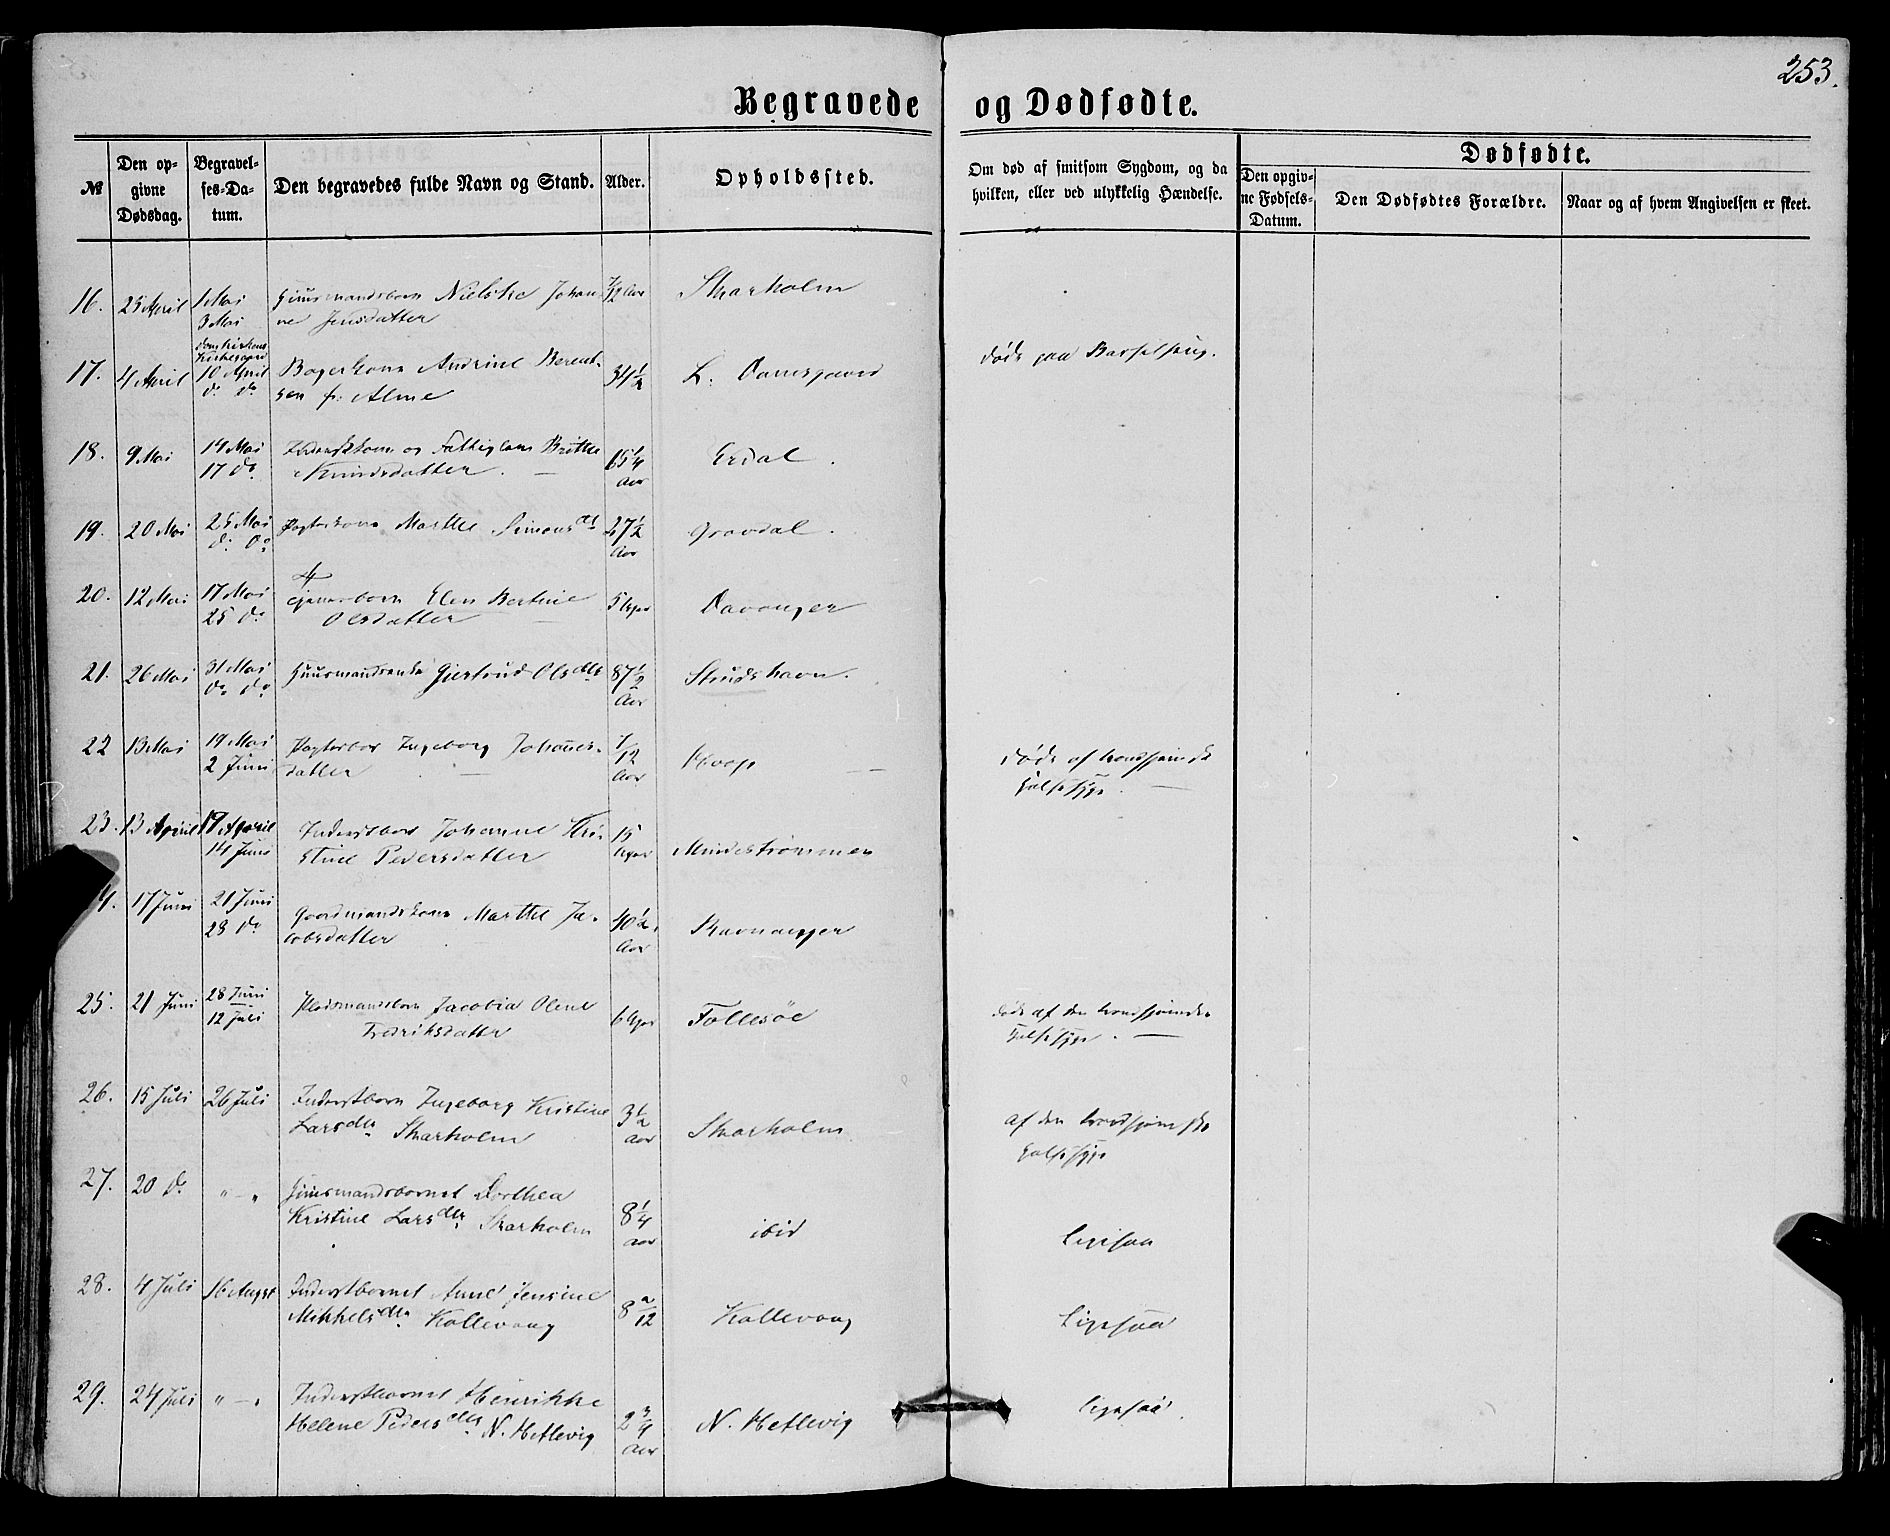 253.
Begravede og Dødfødte.
№
Den opgivne Dødsdag.
Begravelses-Datum.
Den begravedes fulde Navn og Stand.
Alder.
Opholdssted.
Om død af smitsom Sygdom, og da hvilken, eller ved ulykkelig Hændelse.
Dødfødte.
Den opgivne Fødsels-Datum.
Den Dødfødtes Forældre.
Naar og af hvem Angivelsen er skeet.
16. 25 April 1 Mai Huusmandsbarn Nielske Johan- 7/12 Aar Skarholm
3 Mai ne Jensdatter
17. 4 April Domkirkens Kirkegaard 10 April Bagerkone Andrine Berent- 34½ L. Damsgaard døde paa Barselseng.
do do sen f: Alme
18. 9 Mai 14 Mai og Fattiglem Britthe 65¼ Erdal.
17 do Knudsdatter. Aar
19. 20 Mai 25 Mai Pagterkone Marthe Simonsdtr 27½ Gravdal.
do do Aar
20. 12 Mai 17 Mai Elen Bertine 5 Uger Davanger
25 do Olsdatter
21. 26 Mai 31 Mai Huusmandsenke Gjertrud Olsdtr 87½ Strudshavn.
do do Aar
22 13 Mai 19 Mai Pagterbar Ingeborg Johannes- 7/12 Hvop døde af trondhjemske
2 Juni datter Aar Halssyge.
23. 13 April 19 April Inderstbarn Johanne Kri- 15 Mindestrømmen
14 Juni stine Pedersdatter Uger
4. 17 Juni 21 Juni Gaardmandskone Marthe Ja- 40½ Ravnanger
28 do cobsdatter Aar
25. 21 Juni 28 Juni Pladsmandsbarn Jacobia Olene 6 Uger Follesøe døde af den trondhjemske
12 Juli Fredriksdatter Halssyge.
26. 15 Juli 26 Juli Inderstbarn Ingeborg Kristine 3½ Skarholm af den trondhjemske
Larsdtr Skarholm Aar Halssyge
27. 20 do " - " Huusmandsbarnet Dorthea
Kristine Larsdtr Skarholm 8¼ Aar ibid Ligesaa
28. 4 Juli 16 August Inderstbarnet Anne Jensine
Mikkelsdtr Kollevaag 8 /12 Kollevaag Ligesaa
29. 24 Juli " - " Inderstbarnet Henrikke
Helene Pedersdtr N. Hetlevig 2 3/4 Aar N. Hetlevig Ligesaa